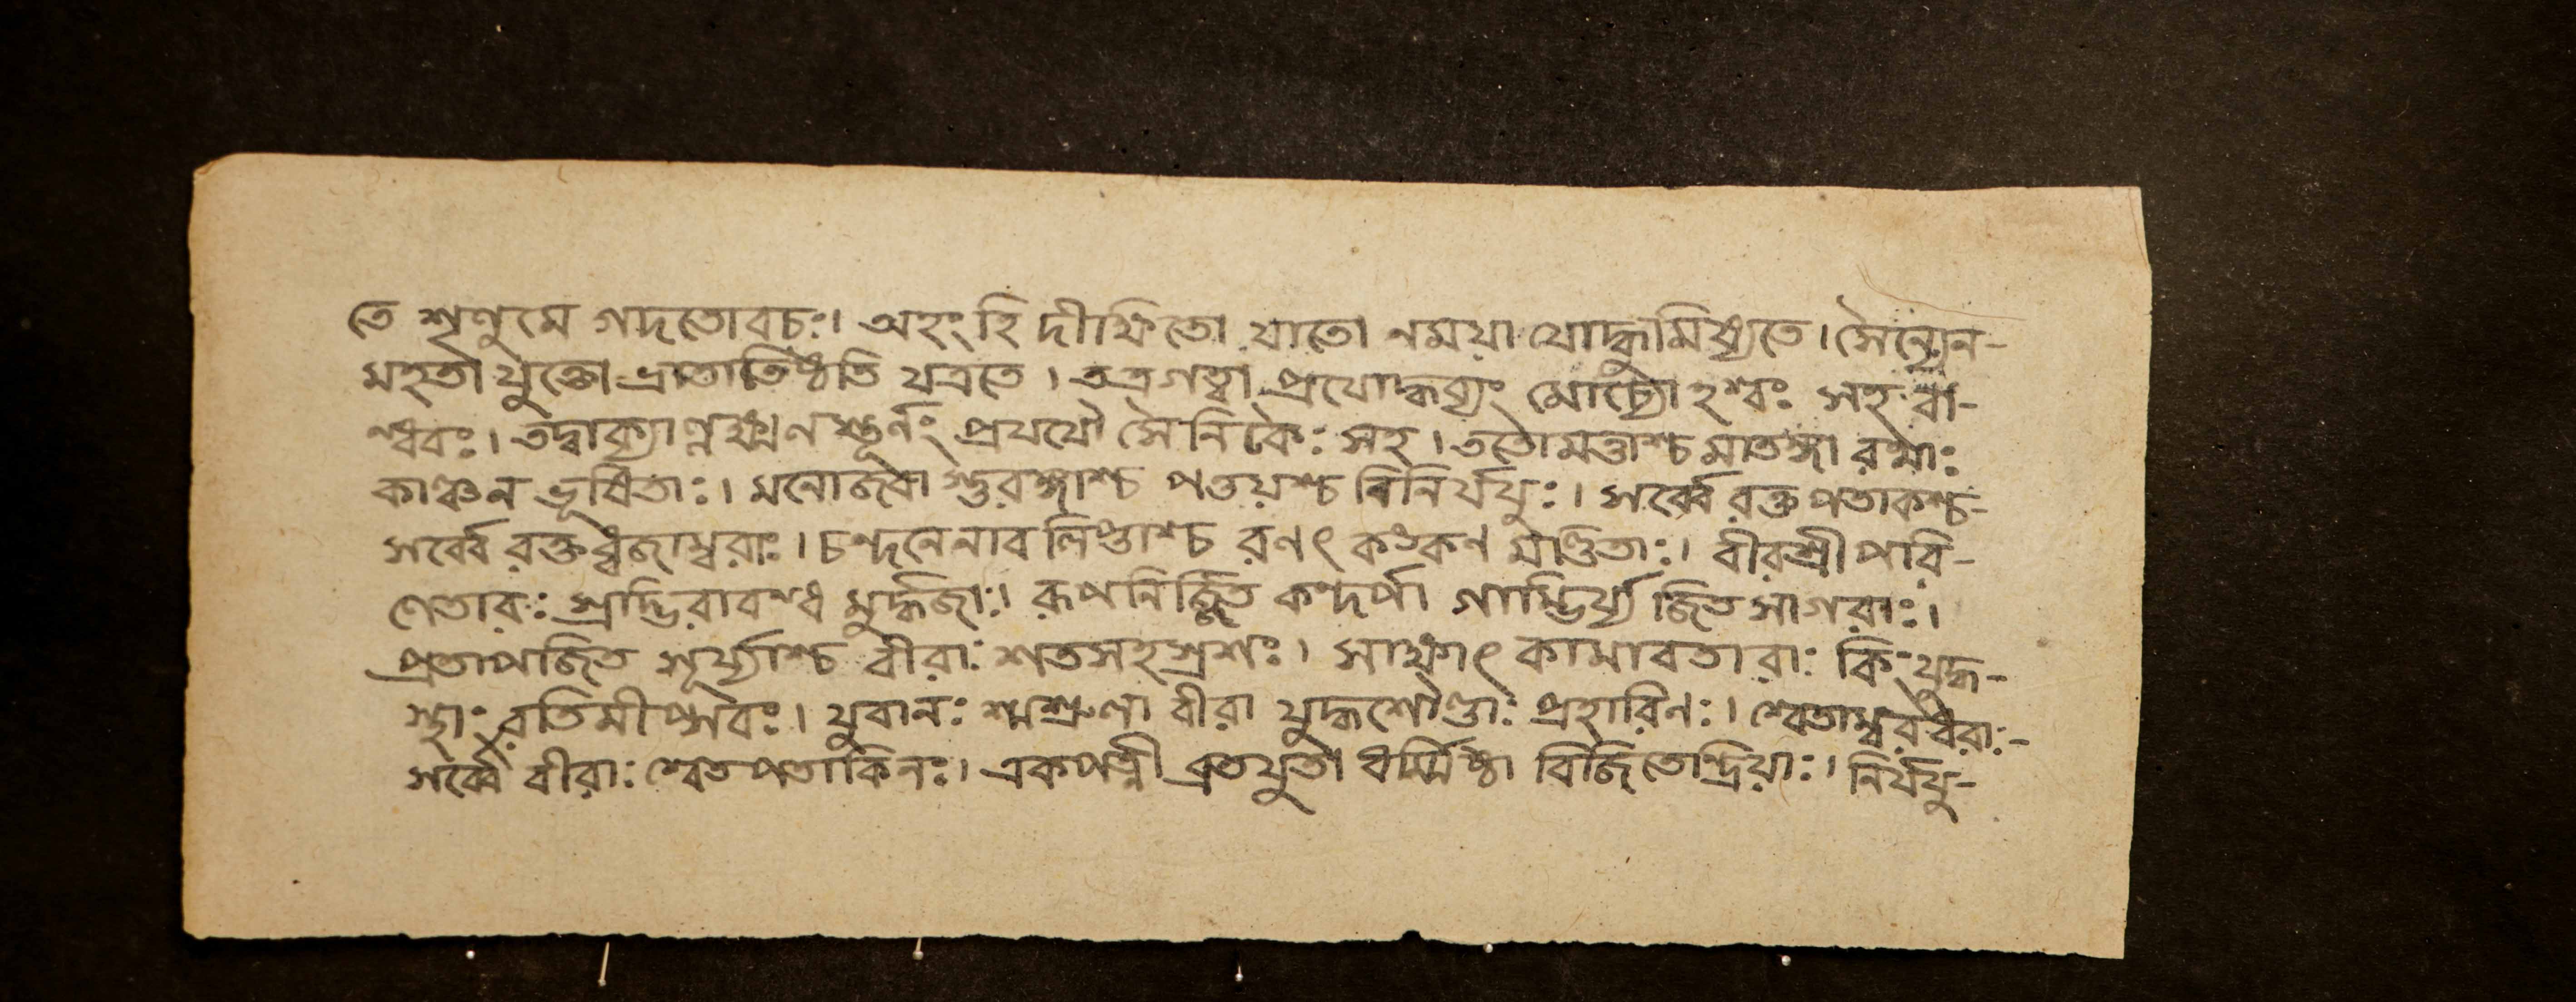 তে শৃণু মে গদতোবচঃ। অহং হি দীক্ষিতো যাতো নময়া যোদ্ধুমিষ্যতে। সৈন্যেন-
মহতা যুক্তো ভ্রাতাতিষ্ঠতি যত্রতে। তত্রগত্বা প্রযোদ্ধব্যং মোচ্যোঽশ্বঃ সহ বা-
ন্ধবঃ। তদ্বাক্যাল্লক্ষ্মণস্তূর্নং প্রযযৌ সৈনিকৈঃ সহ। ততোমত্তাশ্চ মাতঙ্গা রথাঃ
কাঞ্চন ভূষিতাঃ। মনোজবা স্তুরঙ্গাশ্চ পত্তয়শ্চ বিনির্যযুঃ। সর্ব্বে রক্ত পতাকশ্চ-
সর্ব্বে রক্তধ্বজাম্বরাঃ। চন্দনেনাব লিপ্তাশ্চ রণৎ কংকণ মণ্ডিতাঃ। বীরশ্রী পরি-
ণেতারঃ স্রাদ্ভিরাবন্ধ মুর্দ্ধজাঃ। রূপনির্জ্জিত কন্দর্পা গাম্ভির্য্য জিতসাগরাঃ।
প্রতাপজিত সূর্য্যাশ্চ বীরাঃ শতসহস্রশঃ। সাক্ষাৎ কামাবতারাঃ কিং যুদ্ধ-
স্থাঃ রতিমীপ্সবঃ। যুবানঃ শ্মশ্রুণা বীরা যুদ্ধশৌণ্ডাঃ প্রহারিনঃ। শ্বেতাম্বরধরাঃ-
সর্ব্বে বীরাঃ শ্বেতপতাকিনঃ। একপত্নী ব্রতযুতা ধর্ম্মিষ্ঠা বিজিতেন্দ্রিয়াঃ। নির্যযু-